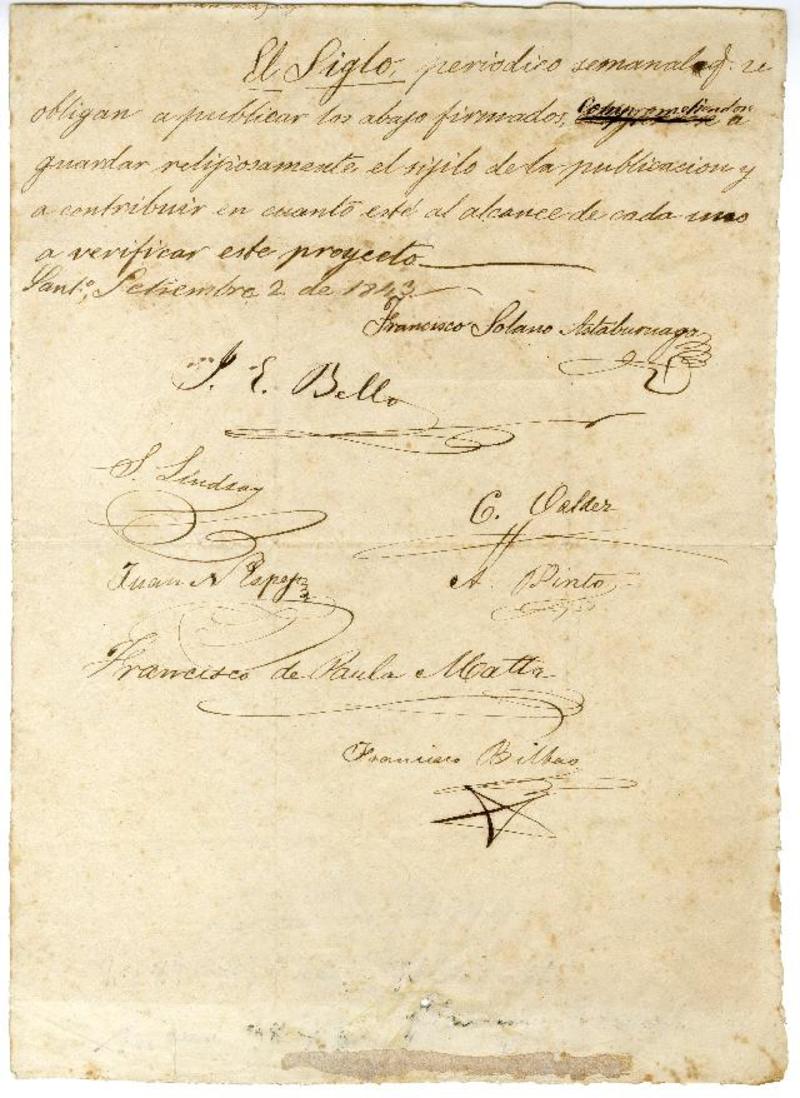 El Siglo, periódico semanal q. se
obligan a publicar los abajo firmados, Comprometiendose a
guardar relijiosamente el sijilo de la publicacion y
a contribuir en cuanto esté al alcance de cada uno
a verificar este proyecto
Sant.º, Setiembre 2 de 1843.
Francisco Solano Astaburuaga
J. E. Bello
S. Lindsay
C. Valdez
Juan N Espejo
A. Pinto
Francisco de Paula Matta
Francisco Bilbao